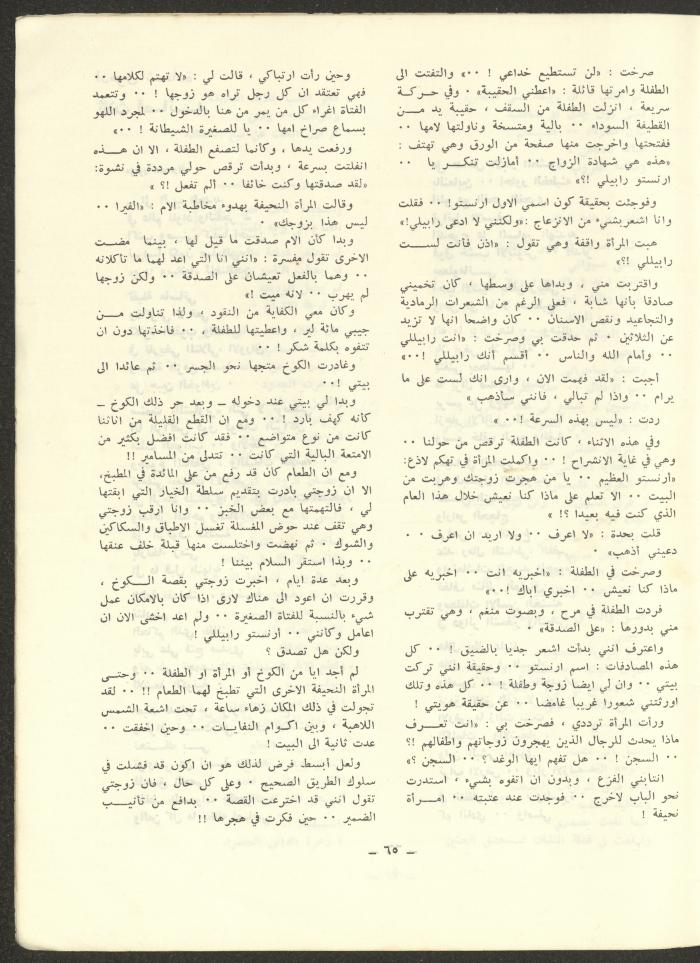 صرخت : «لن تستطيع خداعي ! ٠٠» والتفتت الى
الطفلة وامرتها قائلة : «اعطني الحقيبة» ٠ وفي حركة
سريعة ، انزلت الطفلة من السقف ، حقيبة يد مـن
القطيفة السوداء ٠٠ بالية ومتسخة وناولتها لامها ٠٠
ففتحتها واخرجت منها صفحة من الورق وهي تهتف :
«هذه هي شهادة الزواج ٠٠ أمازلت تتنكـر يا ٠٠
ارنستو رابيلي !؟»
وفوجئت بحقيقة كون اسمي الاول ارنستو! ٠٠ فقلت
وانا اشعر بشيء من الانزعاج :«ولكنني لا ادعى رابيلي!»
هبت المرأة واقفة وهي تقول : «اذن فأنت لســت
رابيللي !؟»
واقتربت مني ، ويداها على وسطها ، كان تخميني
صادقا بأنها شابة ، فعلى الرغم من الشعرات الرمادية
والتجاعيد ونقص الاسنان ٠٠ كان واضحا انها لا تزيد
عن الثلاثين ٠ ثم حدقت بي وصرخت : «انت رابيللي
٠٠ وأمام الله والناس ٠٠ أقسم أنك رابيللي !٠٠»
أجبت : «لقد فهمت الان ، وارى انك لست على ما
يرام ٠٠ واذا لم تبالي ، فانني سأذهب »
ردت : «ليس بهذه السرعة !٠٠ »
وفي هذه الاثناء ، كانت الطفلة ترقص من حولنا ٠٠
وهي في غاية الانشراح ! ٠٠ واكملت المرأة في تهكم لاذع:
«أرنستو العظيم ٠٠ يا من هجرت زوجتك وهربت من
البيت ٠٠ الا تعلم على ماذا كنا نعيش خلال هذا العام
الذي كنت فيه بعيدا ؟! »
قلت بحدة : «لا اعرف ٠٠ ولا اريد ان اعرف ٠٠
دعيني أذهب» ٠
وصرخت في الطفلة : «اخبريه انت ٠٠ اخبريه على
ماذا كنا نعيش ٠٠ اخبري اباك !٠٠»
فردت الطفلة في مرح ، وبصوت منغم ، وهي تقترب
مني بدورها : «على الصدقة» ٠
واعترف انني بدأت اشعر جديا بالضيق ! ٠٠ كل
هذه المصادفات : اسم ارنستو ٠٠ وحقيقة انني تركت
بيتي ٠٠ وان لي ايضا زوجة وطفلة ! ٠٠ كل هذه وتلك
اورثتني شعورا غريبا غامضا ٠٠ عن حقيقة هويتي !
ورأت المرأة ترددي ، فصرخت بي : «انت تعــرف
ماذا يحدث للرجال الذين يهجرون زوجاتهم واطفالهم ؟!
٠٠ السجن ! ٠٠ هل تفهم ايها الوغد ؟ ٠٠ السجن ؟»
انتابني الفزع ، وبدون ان اتفوه بشيء ، استدرت
نحو الباب لاخرج ٠٠ فوجدت عند عتبته ٠٠ امــرأة
نحيفة !
وحين رأت ارتباكي ، قالت لي : «لا تهتم لكلامها ٠٠
فهي تعتقد ان كل رجل تراه هو زوجها ! ٠٠ وتتعمد
الفتاة اغراء كل من يمر من هنا بالدخول ٠٠ لمجرد اللهو
بسماع صراخ امها ٠٠ يا للصغيرة الشيطانة ! ٠٠»
ورفعت يدها ، وكأنما لتصفع الطفلة ، الا ان هـــذه
انفلتت بسرعة ، وبدأت ترقص حولي مرددة في نشوة:
«لقد صدقتها وكنت خائفا ٠٠ ألم تفعل !؟ »
وقالت المرأة النحيفة بهدوء مخاطبة الام : «الفيرا ٠٠
ليس هذا بزوجك» ٠
وبدا كأن الام صدقت ما قيل لها ، بينما مضــت
الاخرى تقول مفسرة : «انني انا التي اعد لهما ما تأكلانه
٠٠ وهما بالفعل تعيشان على الصدقة ٠٠ ولكن زوجها
لم يهرب ٠٠ لانه ميت !»
وكان معي الكفاية من النقود ، ولذا تناولت مـــن
جيبي مائة لير ، واعطيتها للطفلة ، ٠٠ فأخذتها دون ان
تتفوه بكلمة شكر ! ٠٠
وغادرت الكوخ متجها نحو الجسر ٠٠ ثم عائدا الى
بيتي !٠٠
وبدا لي بيتي عند دخوله ــ وبعد حر ذلك الكوخ ــ
كأنه كهف بارد ! ٠٠ ومع ان القطع القليلة من اثاثنا
كانت من نوع متواضع ٠٠ فقد كانت افضل بكثير من
الامتعة البالية التي كانت ٠٠ تتدلى من المسامير !!
ومع ان الطعام كان قد رفع من على المائدة في المطبخ،
الا ان زوجتي بادرت بتقديم سلطة الخيار التي ابقتها
لي ، فالتهمتها مع بعض الخبز ٠٠ وانا ارقب زوجتي
وهي تقف عند حوض المغسلة تغسل الاطباق والسكاكين
والشوك ٠ ثم نهضت واختلست منها قبلة خلف عنقها
٠٠ وبذا استقر السلام بيننا !
وبعد عدة ايام ، اخبرت زوجتي بقصة الــكوخ ،
وقررت ان اعود الى هناك لارى اذا كان بالامكان عمل
شيء بالنسبة للفتاة الصغيرة ٠٠ ولم اعد اخشى الان ان
اعامل وكأنني ٠٠ أرنستو رابيللي !
ولكن هل تصدق ؟
لم أجد ايا من الكوخ أو المرأة او الطفلة ٠٠ وحتــى
المرأة النحيفة الاخرى التي تطبخ لهما الطعام !! ٠٠ لقد
تجولت في ذلك المكان زهاء ساعة ، تحت اشعة الشمس
اللاهبة ، وبين اكــوام النفايــات ٠٠ وحين اخفقت ٠٠
عدت ثانية الى البيت !
ولعل أبسط فرض لذلك هو ان اكون قد فشلت في
سلوك الطريق الصحيح ٠ وعلى كل حال ، فان زوجتي
تقول انني قد اخترعت القصة ٠٠ بدافع من تأنيــب
الضمير ٠٠ حين فكرت في هجرها !!
ــ ٦٥ ــ